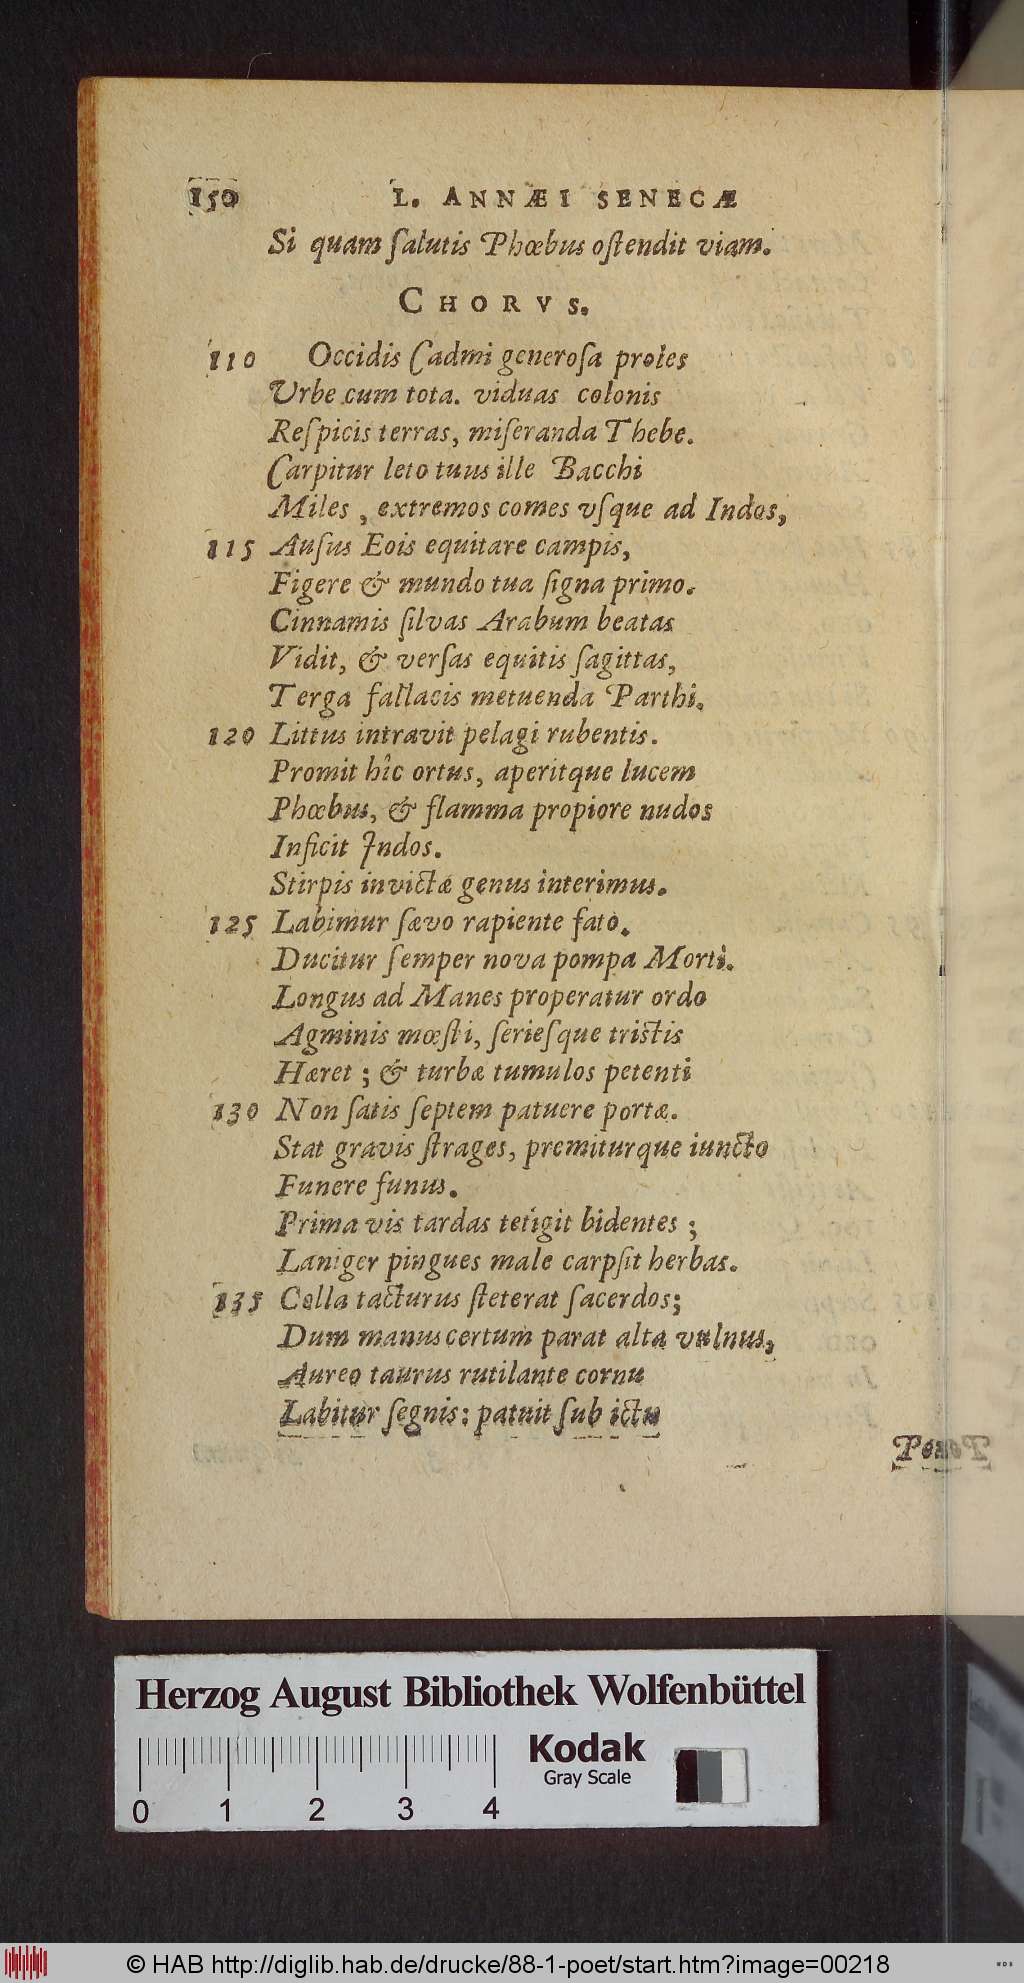 150 L. ANNÆI SENECÆ
Si quam ſalutis Phœbus oſtendit viam.
CHORVS.
110 Occidis Cadmi generoſa proles
Urbe cum tota. viduas colonis
Reſpicis terras, miſeranda Thebe.
Carpitur leto tuus ille Bacchi
Miles, extremos comes vſque ad Indos,
115 Auſus Eois equitare campis,
Figere & mundo tua ſigna primo.
Cinnamis ſilvas Arabum beatas
Vidit, & verſas equitis ſagittas,
Terga fallacis metuenda Parthi.
120 Littus intravit pelagi rubentis.
Promit hîc ortus, aperitque lucem
Phœbus, & flamma propiore nudos
Inficit Indos.
Stirpis invictæ genus interimus.
125 Labimur ſævo rapiente fato.
Ducitur ſemper nova pompa Morti.
Longus ad Manes properatur ordo
Agminis mœſti, ſerieſque triſtis
Hæret; & turbæ tumulos petenti
130 Non ſatis ſeptem patuere portæ.
Stat gravis ſtrages, premiturque iuncto
Funere funus.
Prima vis tardas tetigit bidentes;
Laniger pingues male carpſit herbas.
135 Colla tacturus ſteterat ſacerdos;
Dum manus certum parat alta vulnus,
Aureo taurus rutilante cornu
Labitur ſegnis: patuit ſub ictu
Herzog August Bibliothek Wolfenbüttel
Kodak
Gray Scale
0 1 2 3 4
© HAB http://diglib.hab.de/drucke/88-1-poet/start.htm?image=00218